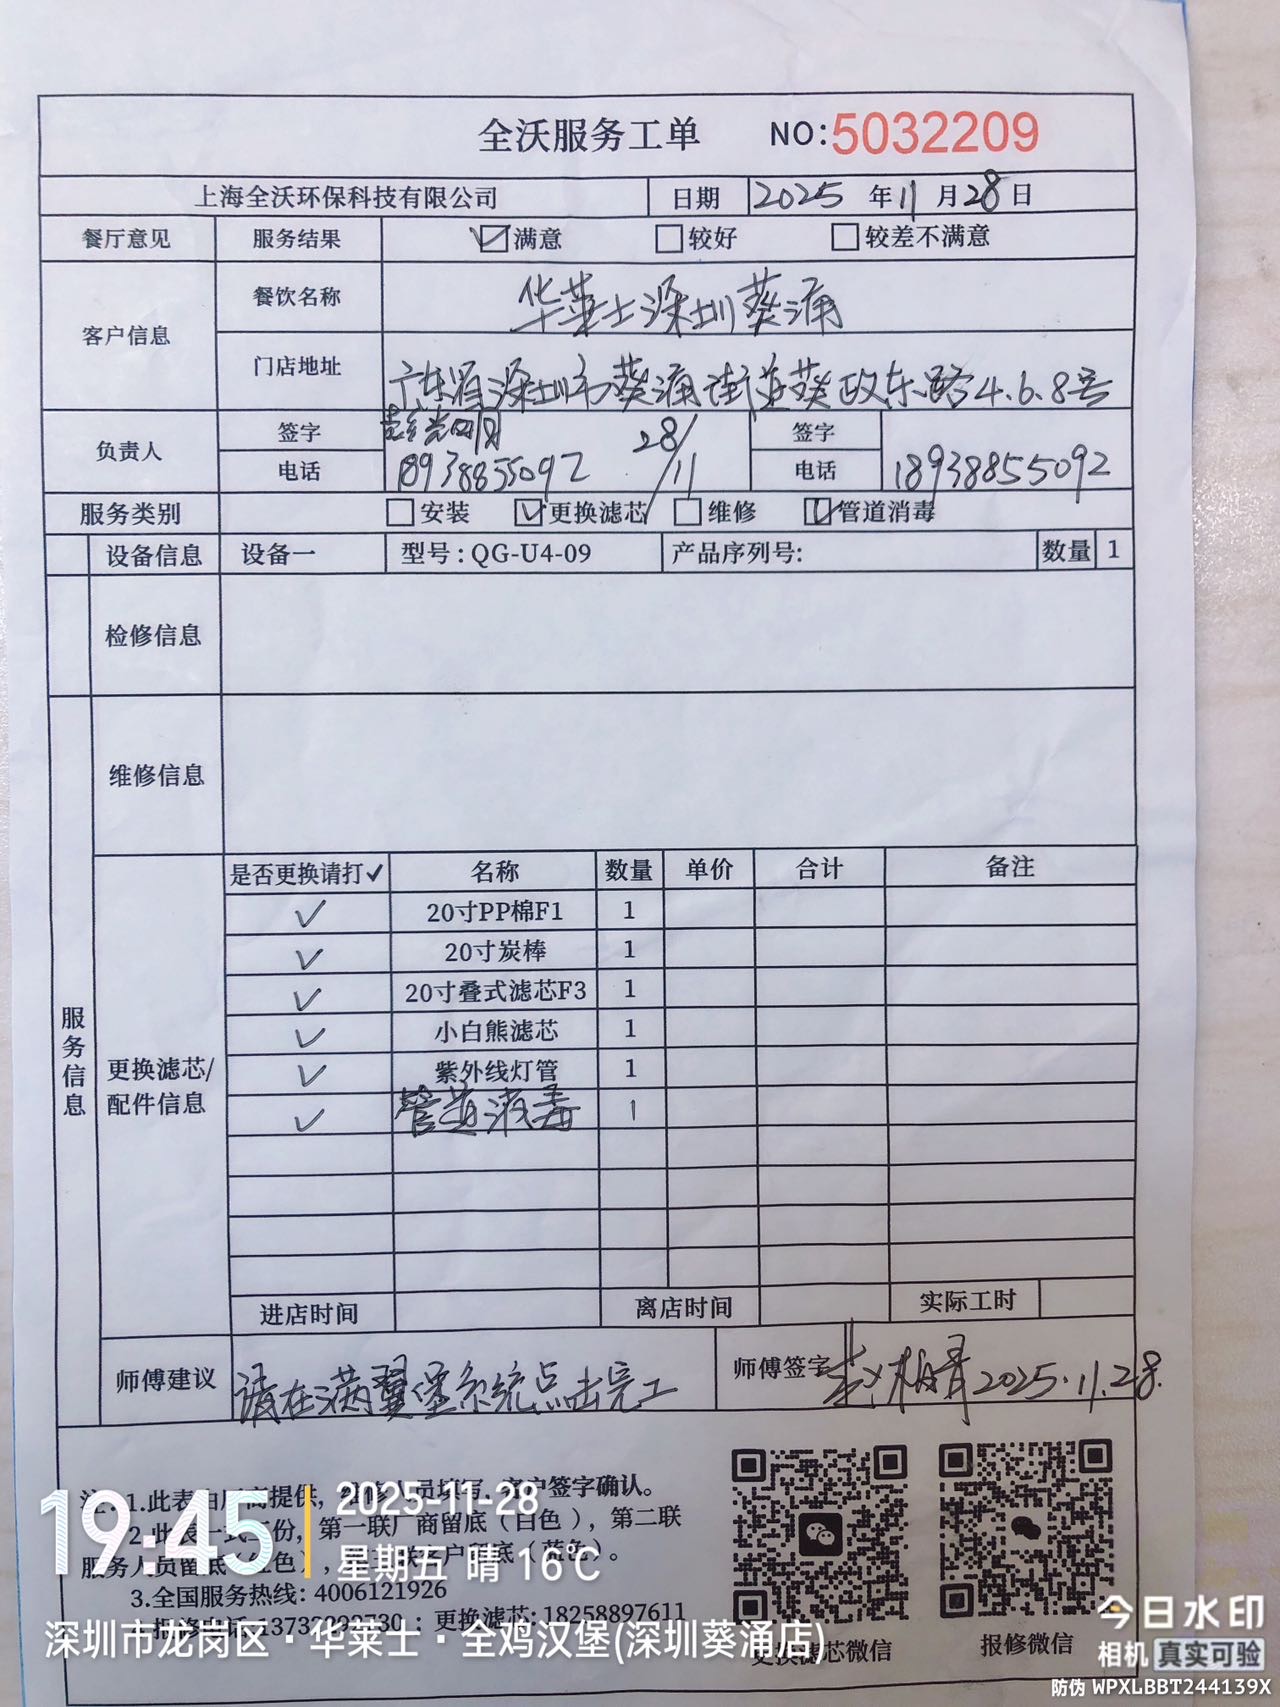 全沃服务工单 NO:5032209
上海全沃环保科技有限公司 日期 2025 年 11 月 28 日
餐厅意见 服务结果 满意 较好 较差不满意
客户信息 餐饮名称 华莱士深圳葵涌
门店地址 广东省深圳市葵涌街道葵政东路4.6.8号
负责人 签字 28/11 签字
电话 18938855092 电话 18938855092
服务类别 安装 更换滤芯 维修 管道消毒
设备信息 设备一 型号：QG-U4-09 产品序列号: 数量 1
检修信息
维修信息
服务信息
更换滤芯/配件信息
是否更换请打✓ 名称 数量 单价 合计 备注
✓ 20寸PP棉F1 1
✓ 20寸炭棒 1
✓ 20寸叠式滤芯F3 1
✓ 小白熊滤芯 1
✓ 紫外线灯管 1
✓ 管道消毒 1
进店时间 离店时间 实际工时
师傅建议 请在满翼堡系统点击完工 师傅签字 2025.11.28.
注:1.此表由厂商提供, 人员填写, 客户签字确认。
2.此表一式 份, 第一联厂商留底（白色）, 第二联
服务人员留底（红色）, 客户留底（蓝色）。
3.全国服务热线: 4006121926
报修电话 ; 更换滤芯: 18258897611
更换滤芯微信 报修微信
19:45 2025-11-28
星期五 晴 16℃
深圳市龙岗区·华莱士·全鸡汉堡(深圳葵涌店)
今日水印
相机 真实可验
防伪 WPXLBBT244139X